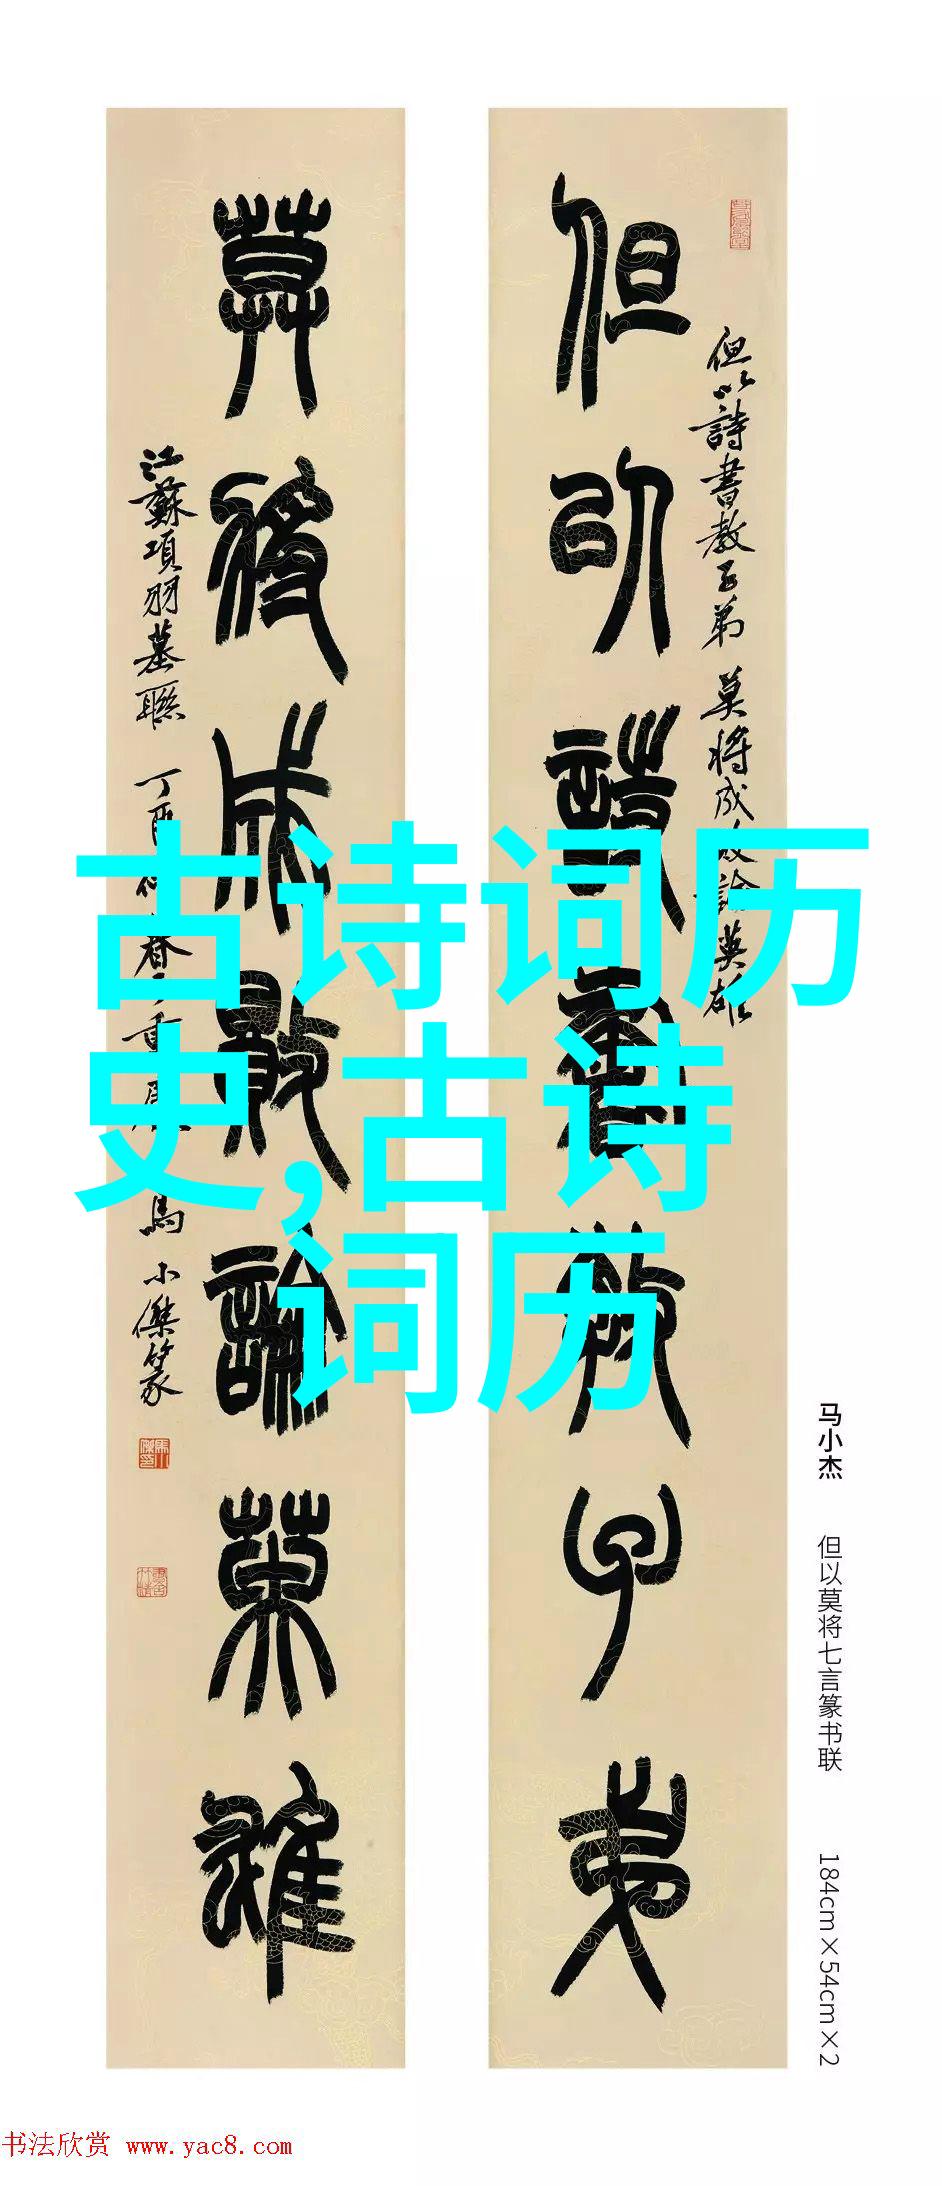 但以詩書教子弟
但以詩書教子弟 莫將成敗論英雄
莫將成敗論英雄
江蘇項羽墓聯 丁酉 春 馬小傑篆
古诗词历
史,古诗
词历
马小杰 但以莫将七言篆书联 184cm×54cm×2
书法欣赏 www.yac8.com